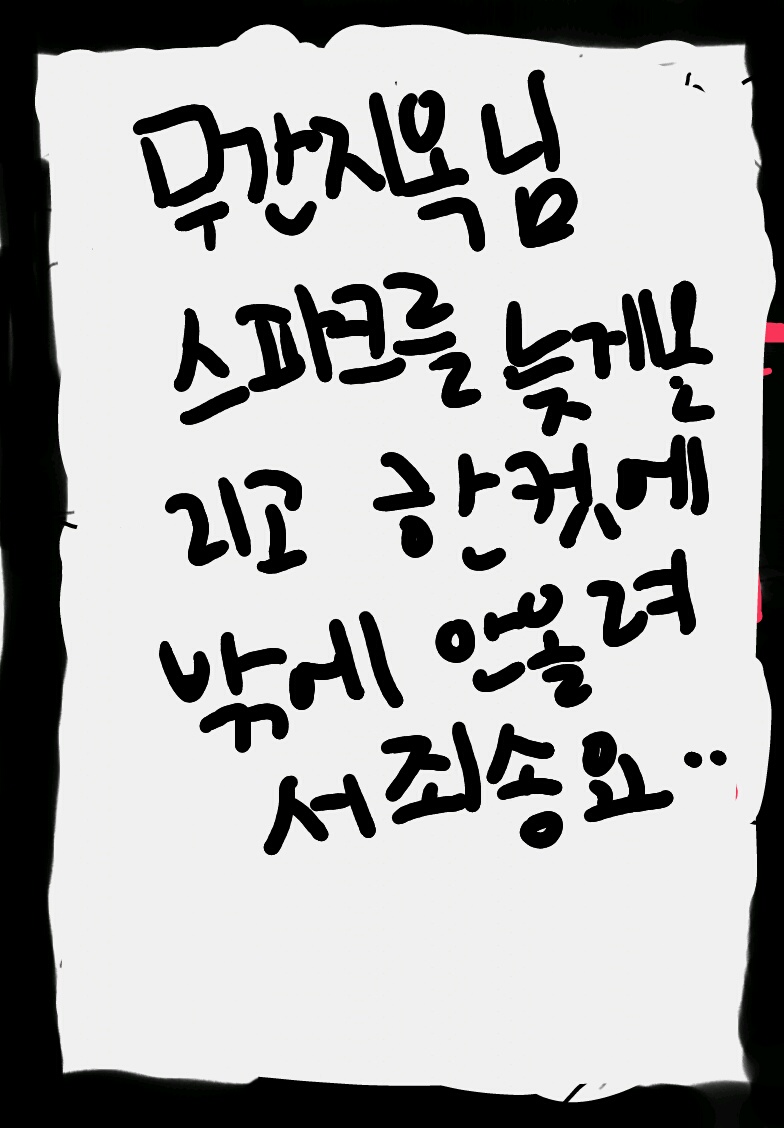 무간지옥님
스파크를 늦게올
리고 한컷에
밖에 안올려
서죄송요..